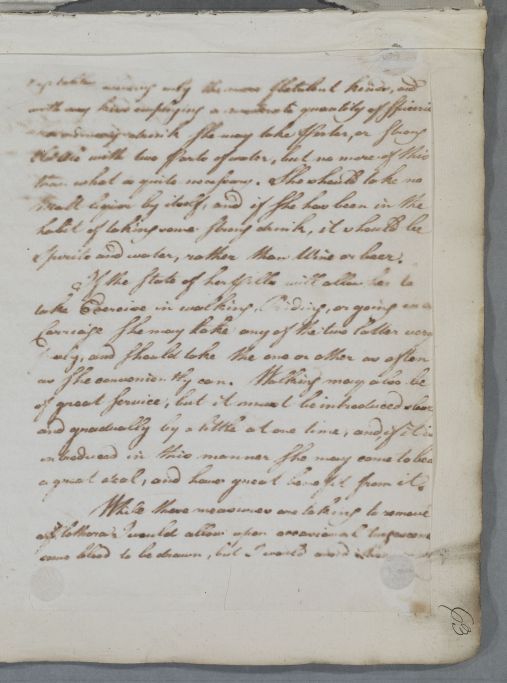 avoiding only the more flatulent kinds, and
with any kind employing a moderate quantity of
ordinary drink She may take Water, or Strong
with two parts of water, but no more of this
than what is quite necessary. She should take no
Small liquor by itself, and if She has been in the
habit of taking some Strong drink, it should be
Spirits and water, rather than Wine or beer.
If the State of her will allow her to
take Exercise in walking, Riding, or going in a
Carriage She may take any of the two latter very
and should take the one or other as often
as She conveniently can. Walking may also be
of great Service, but it must be introduced
and gradually by a little at one time, and if it is
introduced in this manner She may come to bear
a great deal, and have great benefit from it.
While these measures are taking to remove
would allow upon occasional
some blood to be drawn, but I would avoid
63